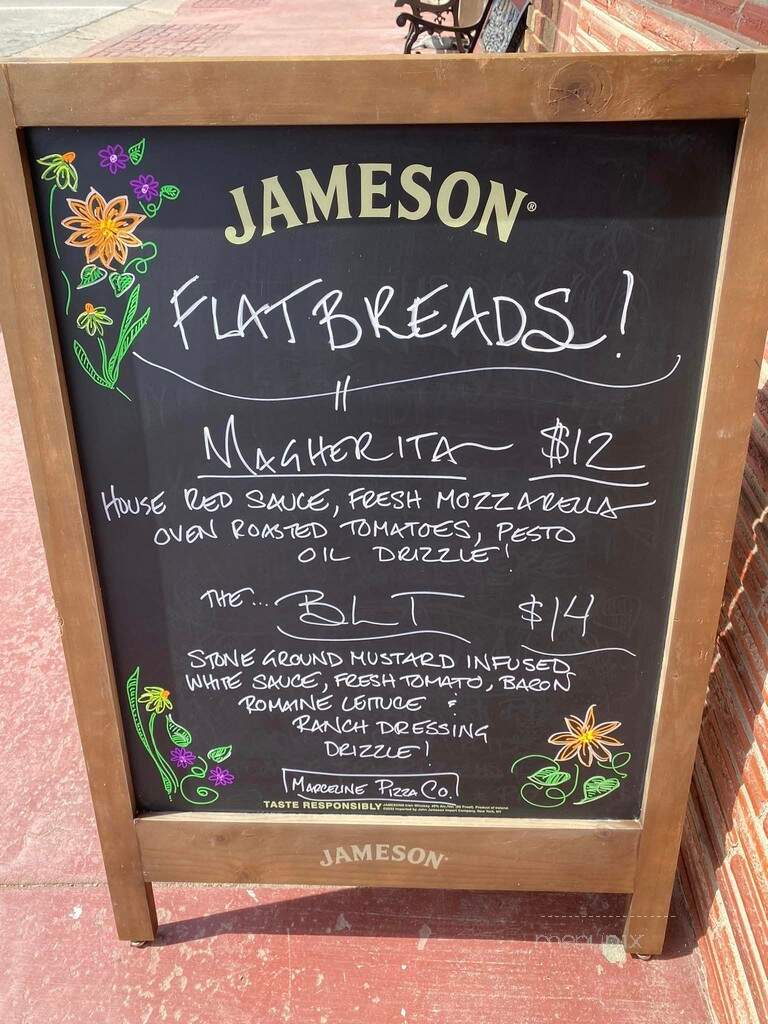 JAMESON®
FLATBREADS!
MAGHERITA $12
HOUSE RED SAUCE, FRESH MOZZARELLA
OVEN ROASTED TOMATOES, PESTO
OIL DRIZZLE!
THE... BLT $14
STONE GROUND MUSTARD INFUSED
WHITE SAUCE, FRESH TOMATO, BACON
ROMAINE LETTUCE &
RANCH DRESSING
DRIZZLE!
MARCELINE PIZZA CO.
TASTE RESPONSIBLY
JAMESON
menupix